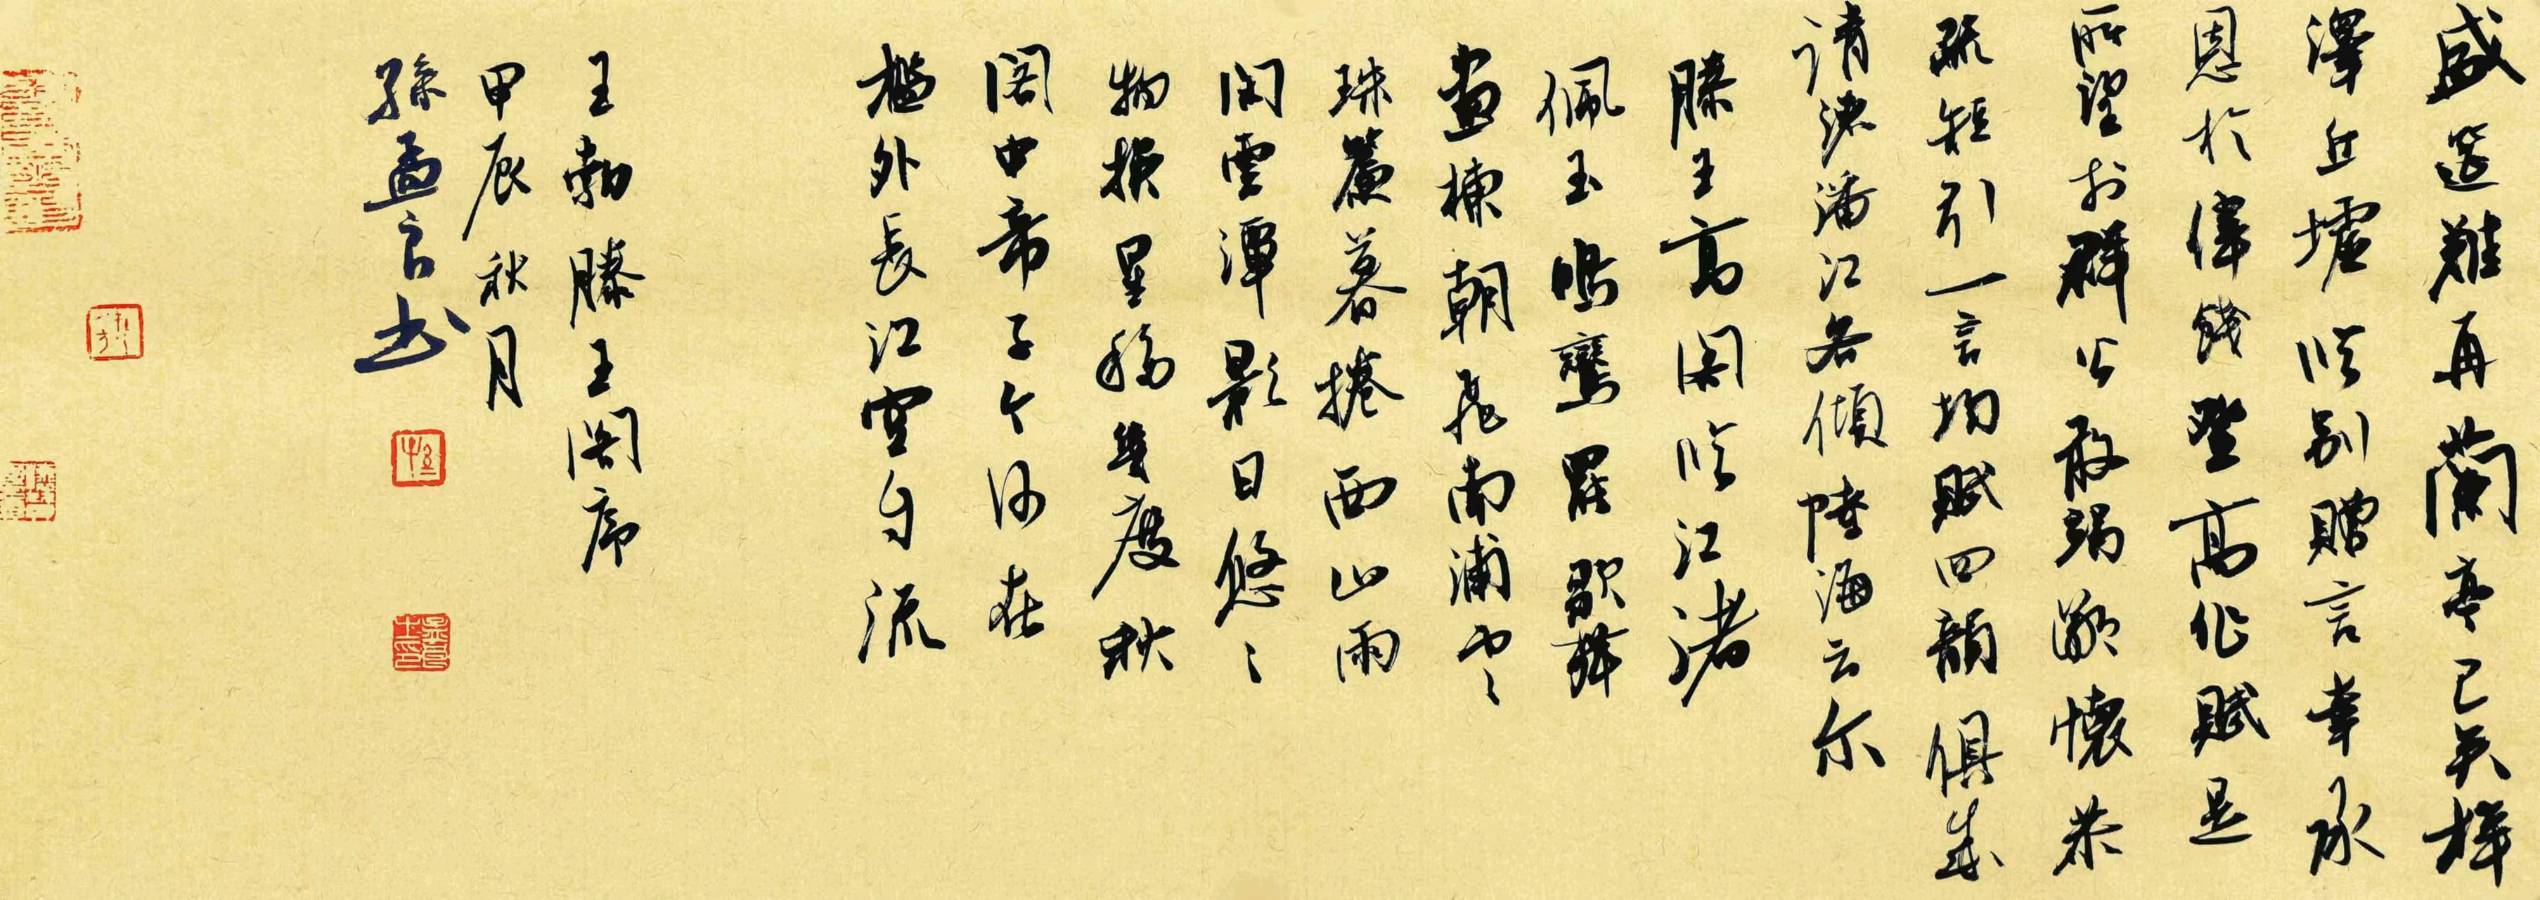 盛筵難再蘭亭已矣梓
澤丘墟臨別贈言幸承
恩於偉餞登高作賦是
所望於群公敢竭鄙懷恭
疏短引一言均賦四韻俱成
請灑潘江各傾陸海云尔
滕王高閣臨江渚
佩玉鳴鸞罷歌舞
畫棟朝飛南浦雲
珠簾暮捲西山雨
閑雲潭影日悠悠
物換星移幾度秋
閣中帝子今何在
檻外長江空自流
王勃滕王閣序
甲辰秋月
孫孟良书